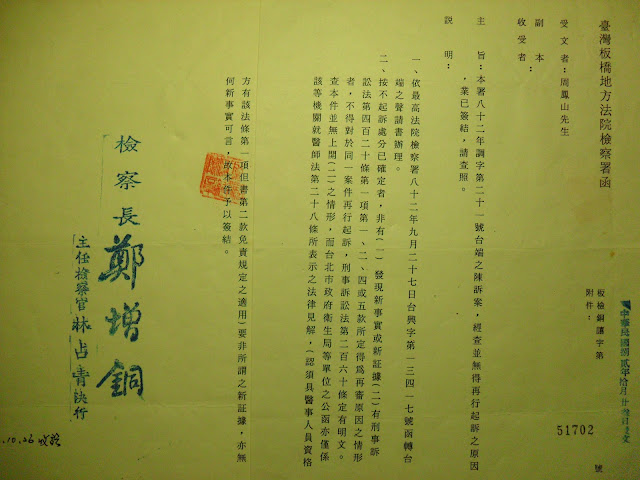 臺灣板橋地方法院檢察署函
中華民國捌貳年拾月
板檢銅讓字第
51702
號
附件：
受文者：周鳳山先生
副本：
收受者：
主　旨：本署八十二年調字第二十一號台端之陳訴案，經查並無得再行起訴之原因
，業已簽結，請查照。
説　明：
一、依最高法院檢察署八十二年九月二十七日台興字第一三四一七號函轉台
端之聲請書辦理。
二、按不起訴處分已確定者，非有(一)發現新事實或新証據(二)有刑事訴
訟法第四百二十條第一項第一、二、四或五款所定得爲再審原因之情形
者，不得對於同一案件再行起訴，刑事訴訟法第二百六十條定有明文。
查本件並無上開(二)之情形，而台北市政府衛生局等單位之公函亦僅係
該等機關就醫師法第二十八條所表示之法律見解，(認須具醫事人員資格
方有該法條第一項但書第二款免責規定之適用)要非所謂之新証據，亦無
何新事實可言，故本件予以簽結。
檢察長鄭增銅
主任檢察官林占青決行
.10.26收